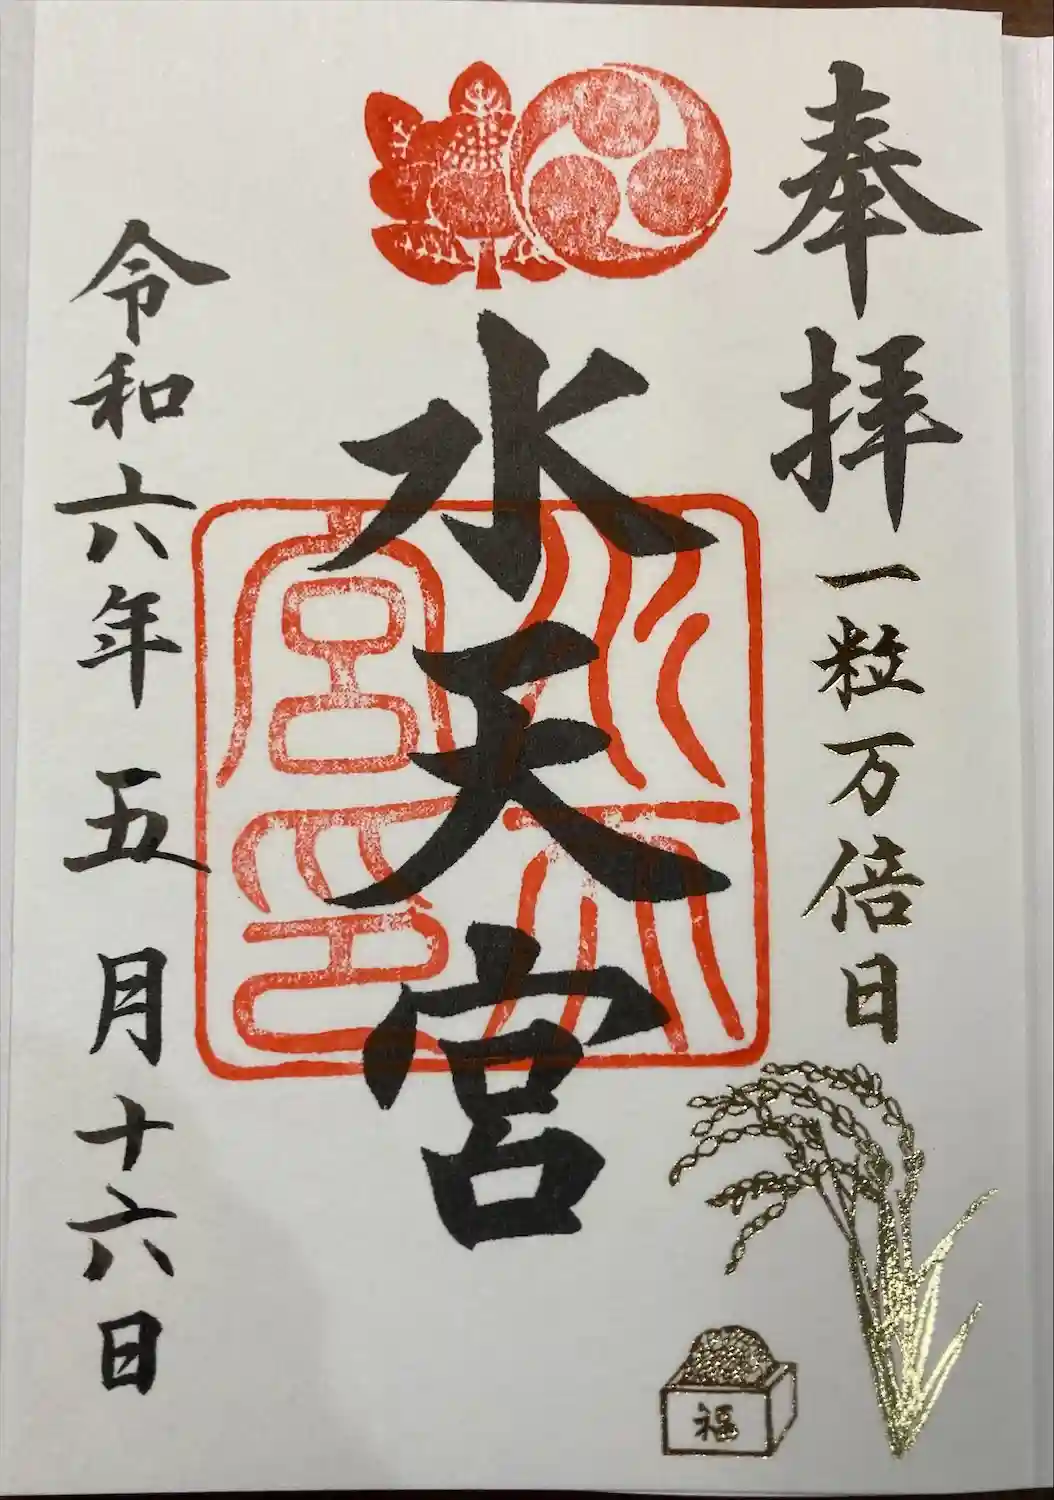 奉拝
一粒万倍日
水天宮
水天宮印
令和六年五月十六日
福